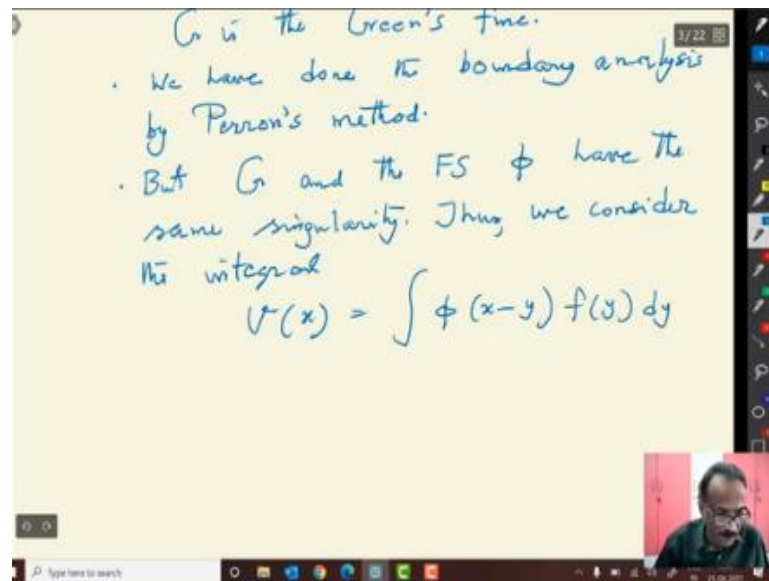 G is the Green's func.
3/22
. We have done the boundary analysis
by Perron's method.
. But G and the FS ϕ have the
same singularity. Thus, we consider
the integral
V(x) = ∫ ϕ(x-y) f(y) dy
Type here to search